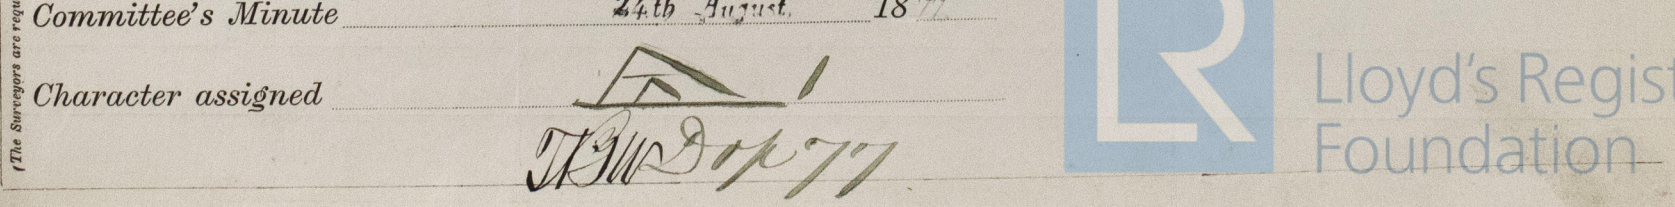 (The Surveyors are requ
Committee's Minute 24th August, 1877
Character assigned A 1
Dop 77
LR
Lloyd's Regist
Foundation